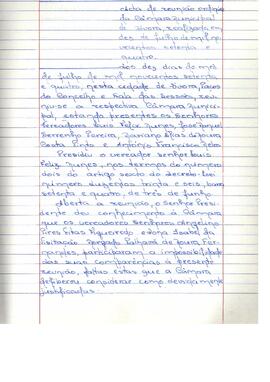 Acta da reunião ordinária
da Câmara Municipal
de Évora, realizada em
dez de Julho de mil no-
vecentos setenta e
quatro.
Aos dez dias do mês
de Julho de mil novecentos setenta
e quatro, nesta cidade de Évora, Paços
do Concelho e Sala das Sessões, reu-
niu-se a respectiva Câmara Munici-
pal, estando presentes os Senhores
Vereadores Luís Félix Nunes, José Joaquim
Barrenho Pereira, Mariano Elias de Moura
Costa Pinto e António Francisco
Presidiu o vereador senhor Luís
Félix Nunes, nos termos do número
dois do artigo sexto do decreto-lei
número duzentos trinta e seis, barra
setenta e quatro, de três de Junho.
Aberta a reunião, o senhor Presi-
dente deu conhecimento à Câmara
que os vereadores senhores
Pires Figueiredo e Dona Isabel da
Visitação de Moura For-
nandes, participaram a impossibilidade
das suas comparências à presente
reunião, faltas estas que a Câmara
deliberou considerar como devidamente
justificadas.